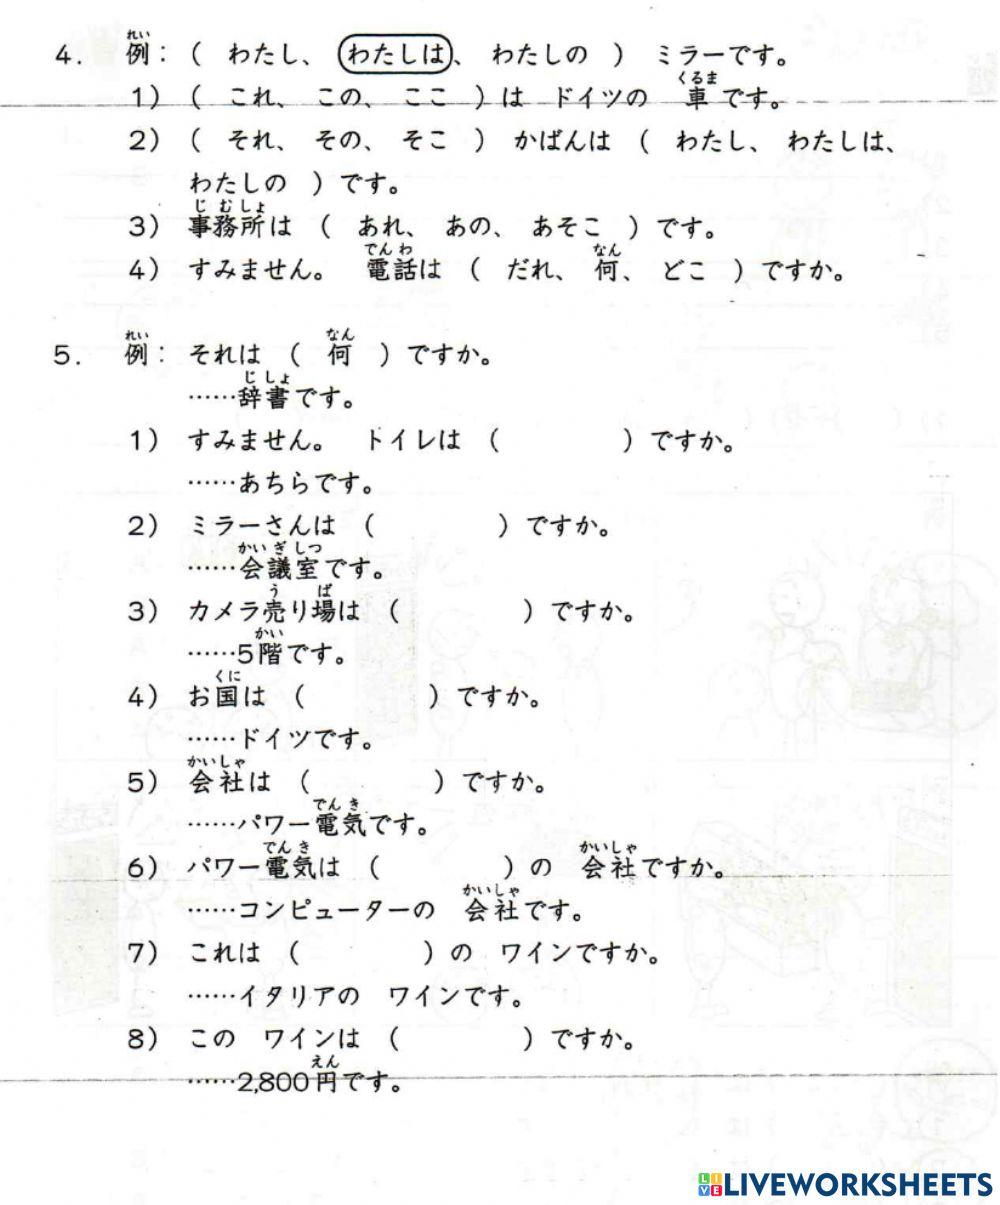 4. 例： （ わたし、 わたしは、 わたしの ） ミラーです。
1) （ これ、 この、 ここ ）は ドイツの 車です。
2) （ それ、 その、 そこ ） かばんは （ わたし、 わたしは、
わたしの ）です。
3) 事務所は （ あれ、 あの、 あそこ ）です。
4) すみません。 電話は （ だれ、 何、 どこ ）ですか。
5. 例： それは （ 何 ）ですか。
……辞書です。
1) すみません。 トイレは （ ）ですか。
……あちらです。
2) ミラーさんは （ ）ですか。
……会議室です。
3) カメラ売り場は （ ）ですか。
……5階です。
4) お国は （ ）ですか。
……ドイツです。
5) 会社は （ ）ですか。
……パワー電気です。
6) パワー電気は （ ）の 会社ですか。
……コンピューターの 会社です。
7) これは （ ）の ワインですか。
……イタリアの ワインです。
8) この ワインは （ ）ですか。
……2,800円です。
LIVEWORKSHEETS